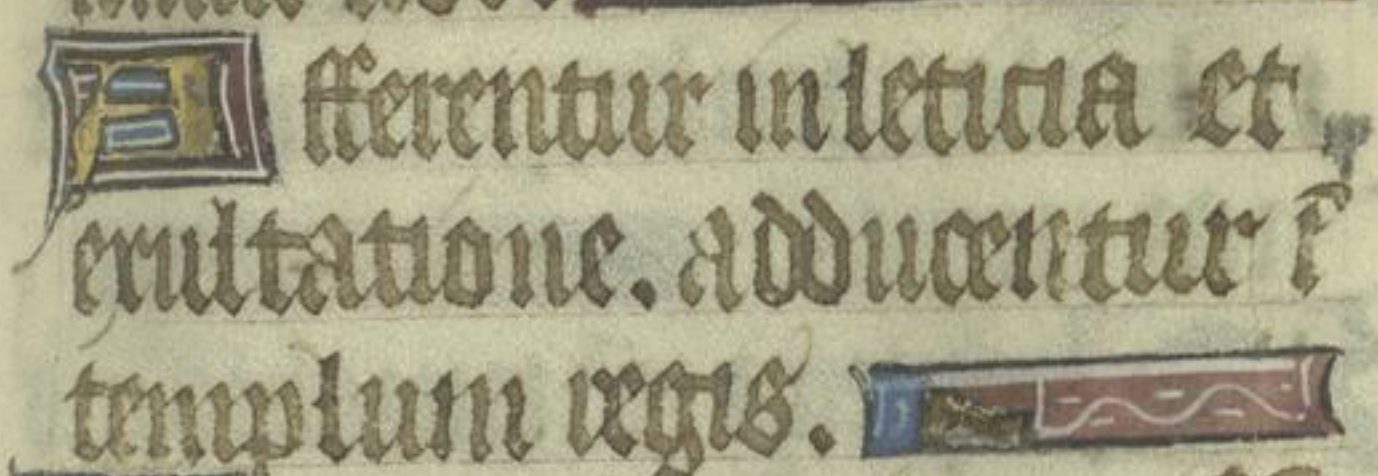 Afferentur in leticia et
exultatione. adducentur ĩ
templum regis.